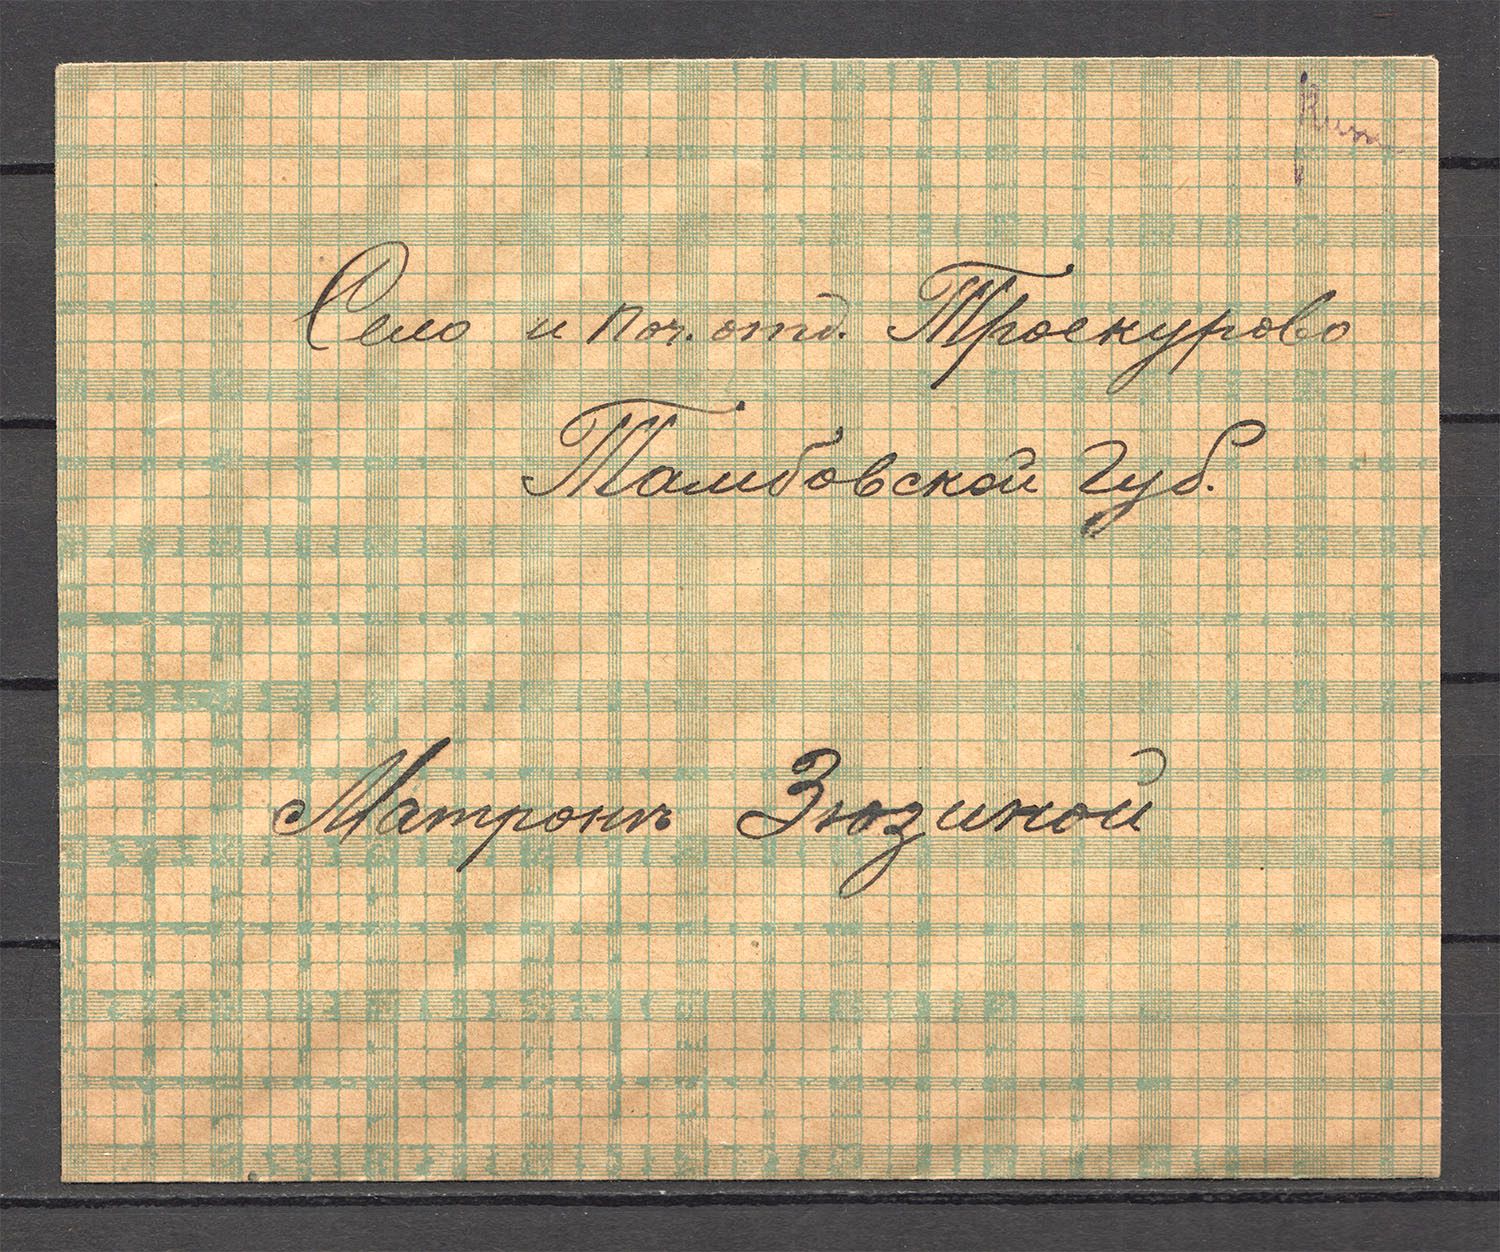 Село и поч. отд. Троекурово
Тамбовской губ.
Матронѣ Зюзиной